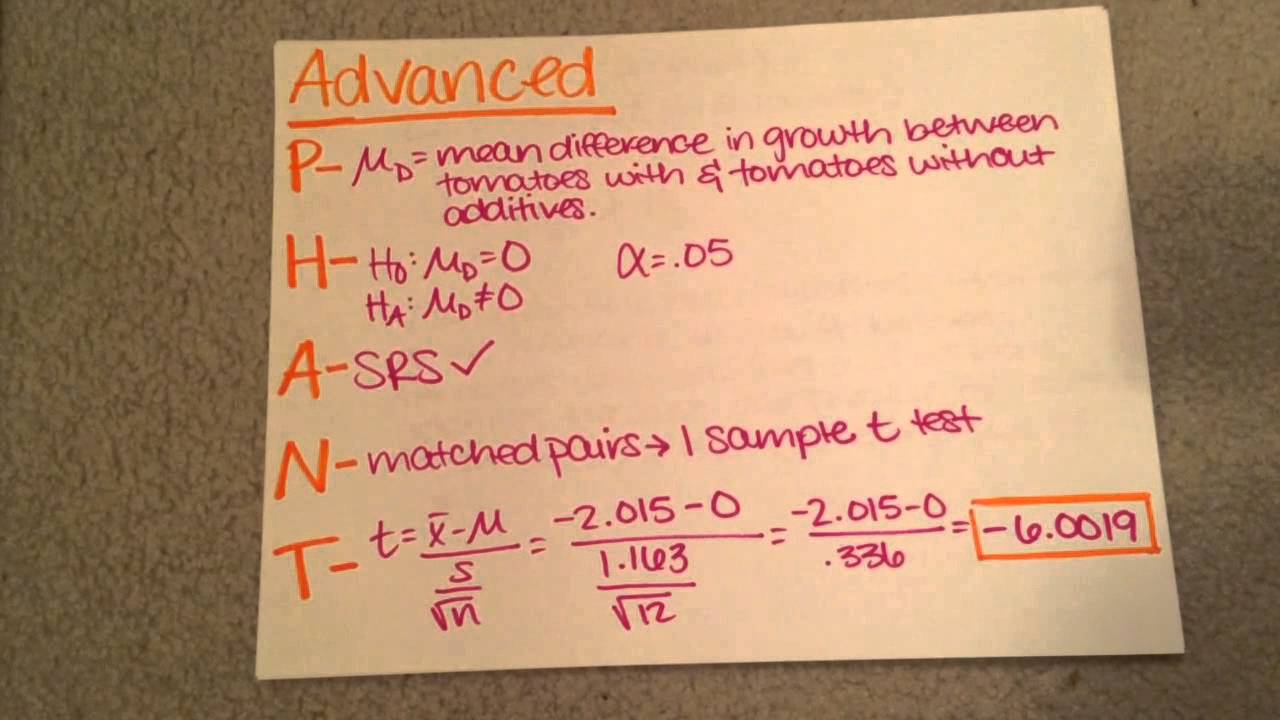 Advanced
P- μD = mean difference in growth between
tomatoes with & tomatoes without
additives.
H- H0: μD = 0 α = .05
HA: μD ≠ 0
A- SRS ✓
N- matched pairs → 1 sample t test
T- t = x̄ - μ / s/√n = -2.015 - 0 / 1.163/√12 = -2.015 - 0 / .336 = -6.0019